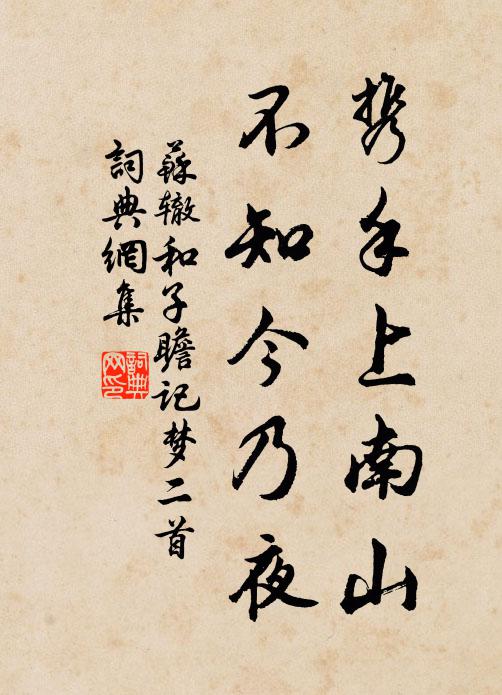 携手上南山
不知今乃夜
蘇辙和子瞻记梦二首
詞典網集
詞典網印